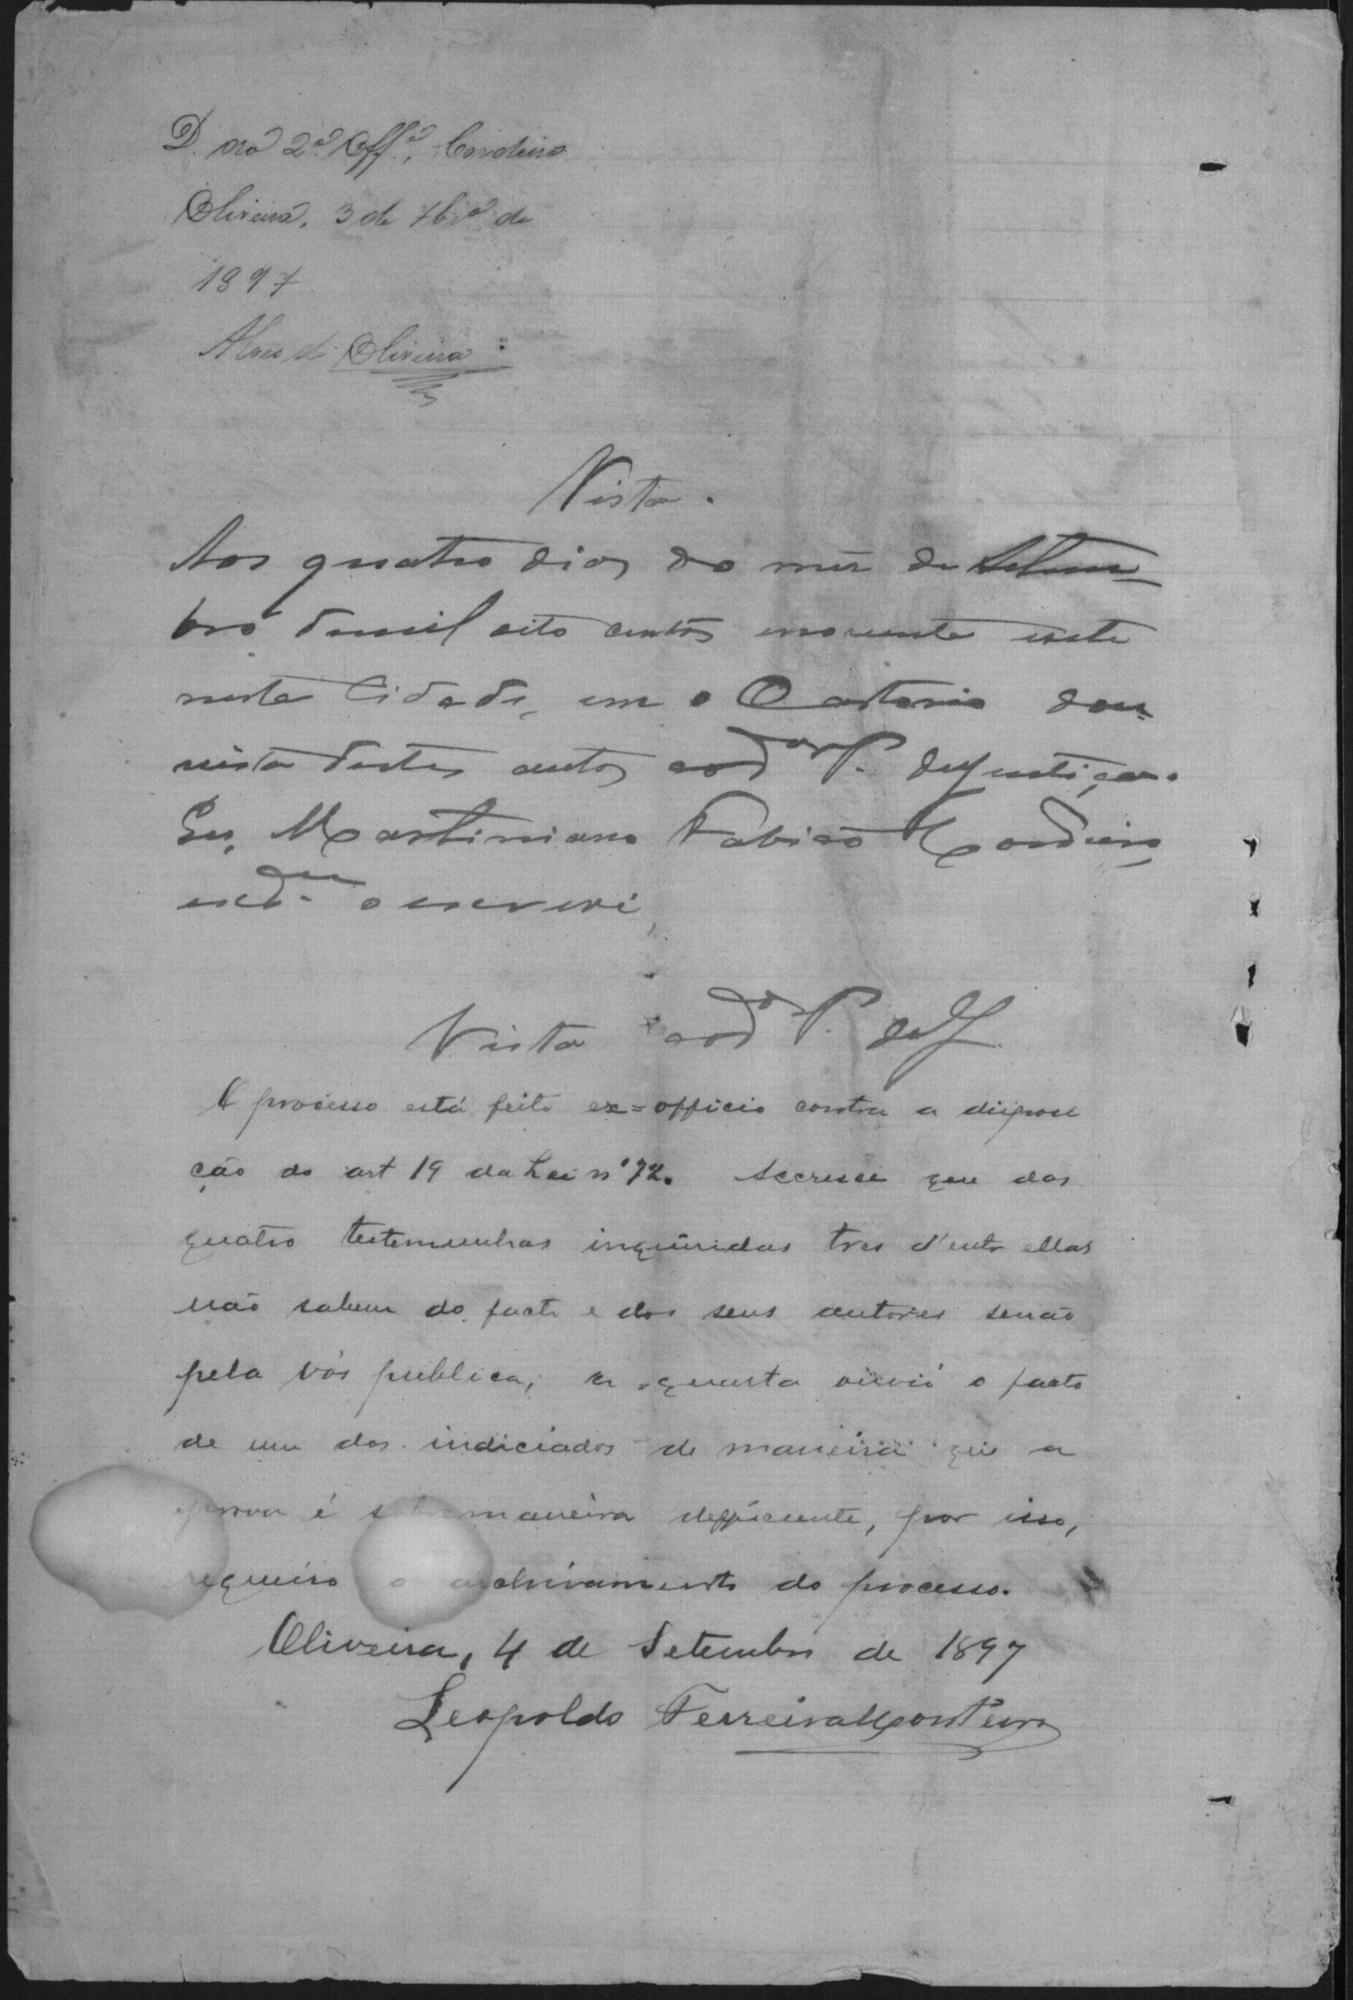 D. ao 2º Offº, Cordeiro
Oliveira, 3 de 7brº de
1897
Alves de Oliveira
Vista.
Aos quatro dias do mez de Setem-
bro de mil oito centos e noventa e sete
nesta Cidade, em o Cartorio dou
vista destes autos ao dor P. de Justiça.
Eu, Martiniano Fabião Cordeiro,
escrm o escrevi
Vista ao dor P. de J.
O processo está feito ex=officio contra a disposi
ção do art 19 da Lei nº 72. Accresce que das
quatro testemunhas inquiridas tres d'entre ellas
não sabem do facto e dos seus autores senão
pela vós publica; a quarta ouviu o facto
de um dos indiciados de maneira que a
prova é sobremaneira defficiente, por isso,
requeiro o archivamento do processo.
Oliveira, 4 de Setembro de 1897
Leopoldo Ferreira Monteiro